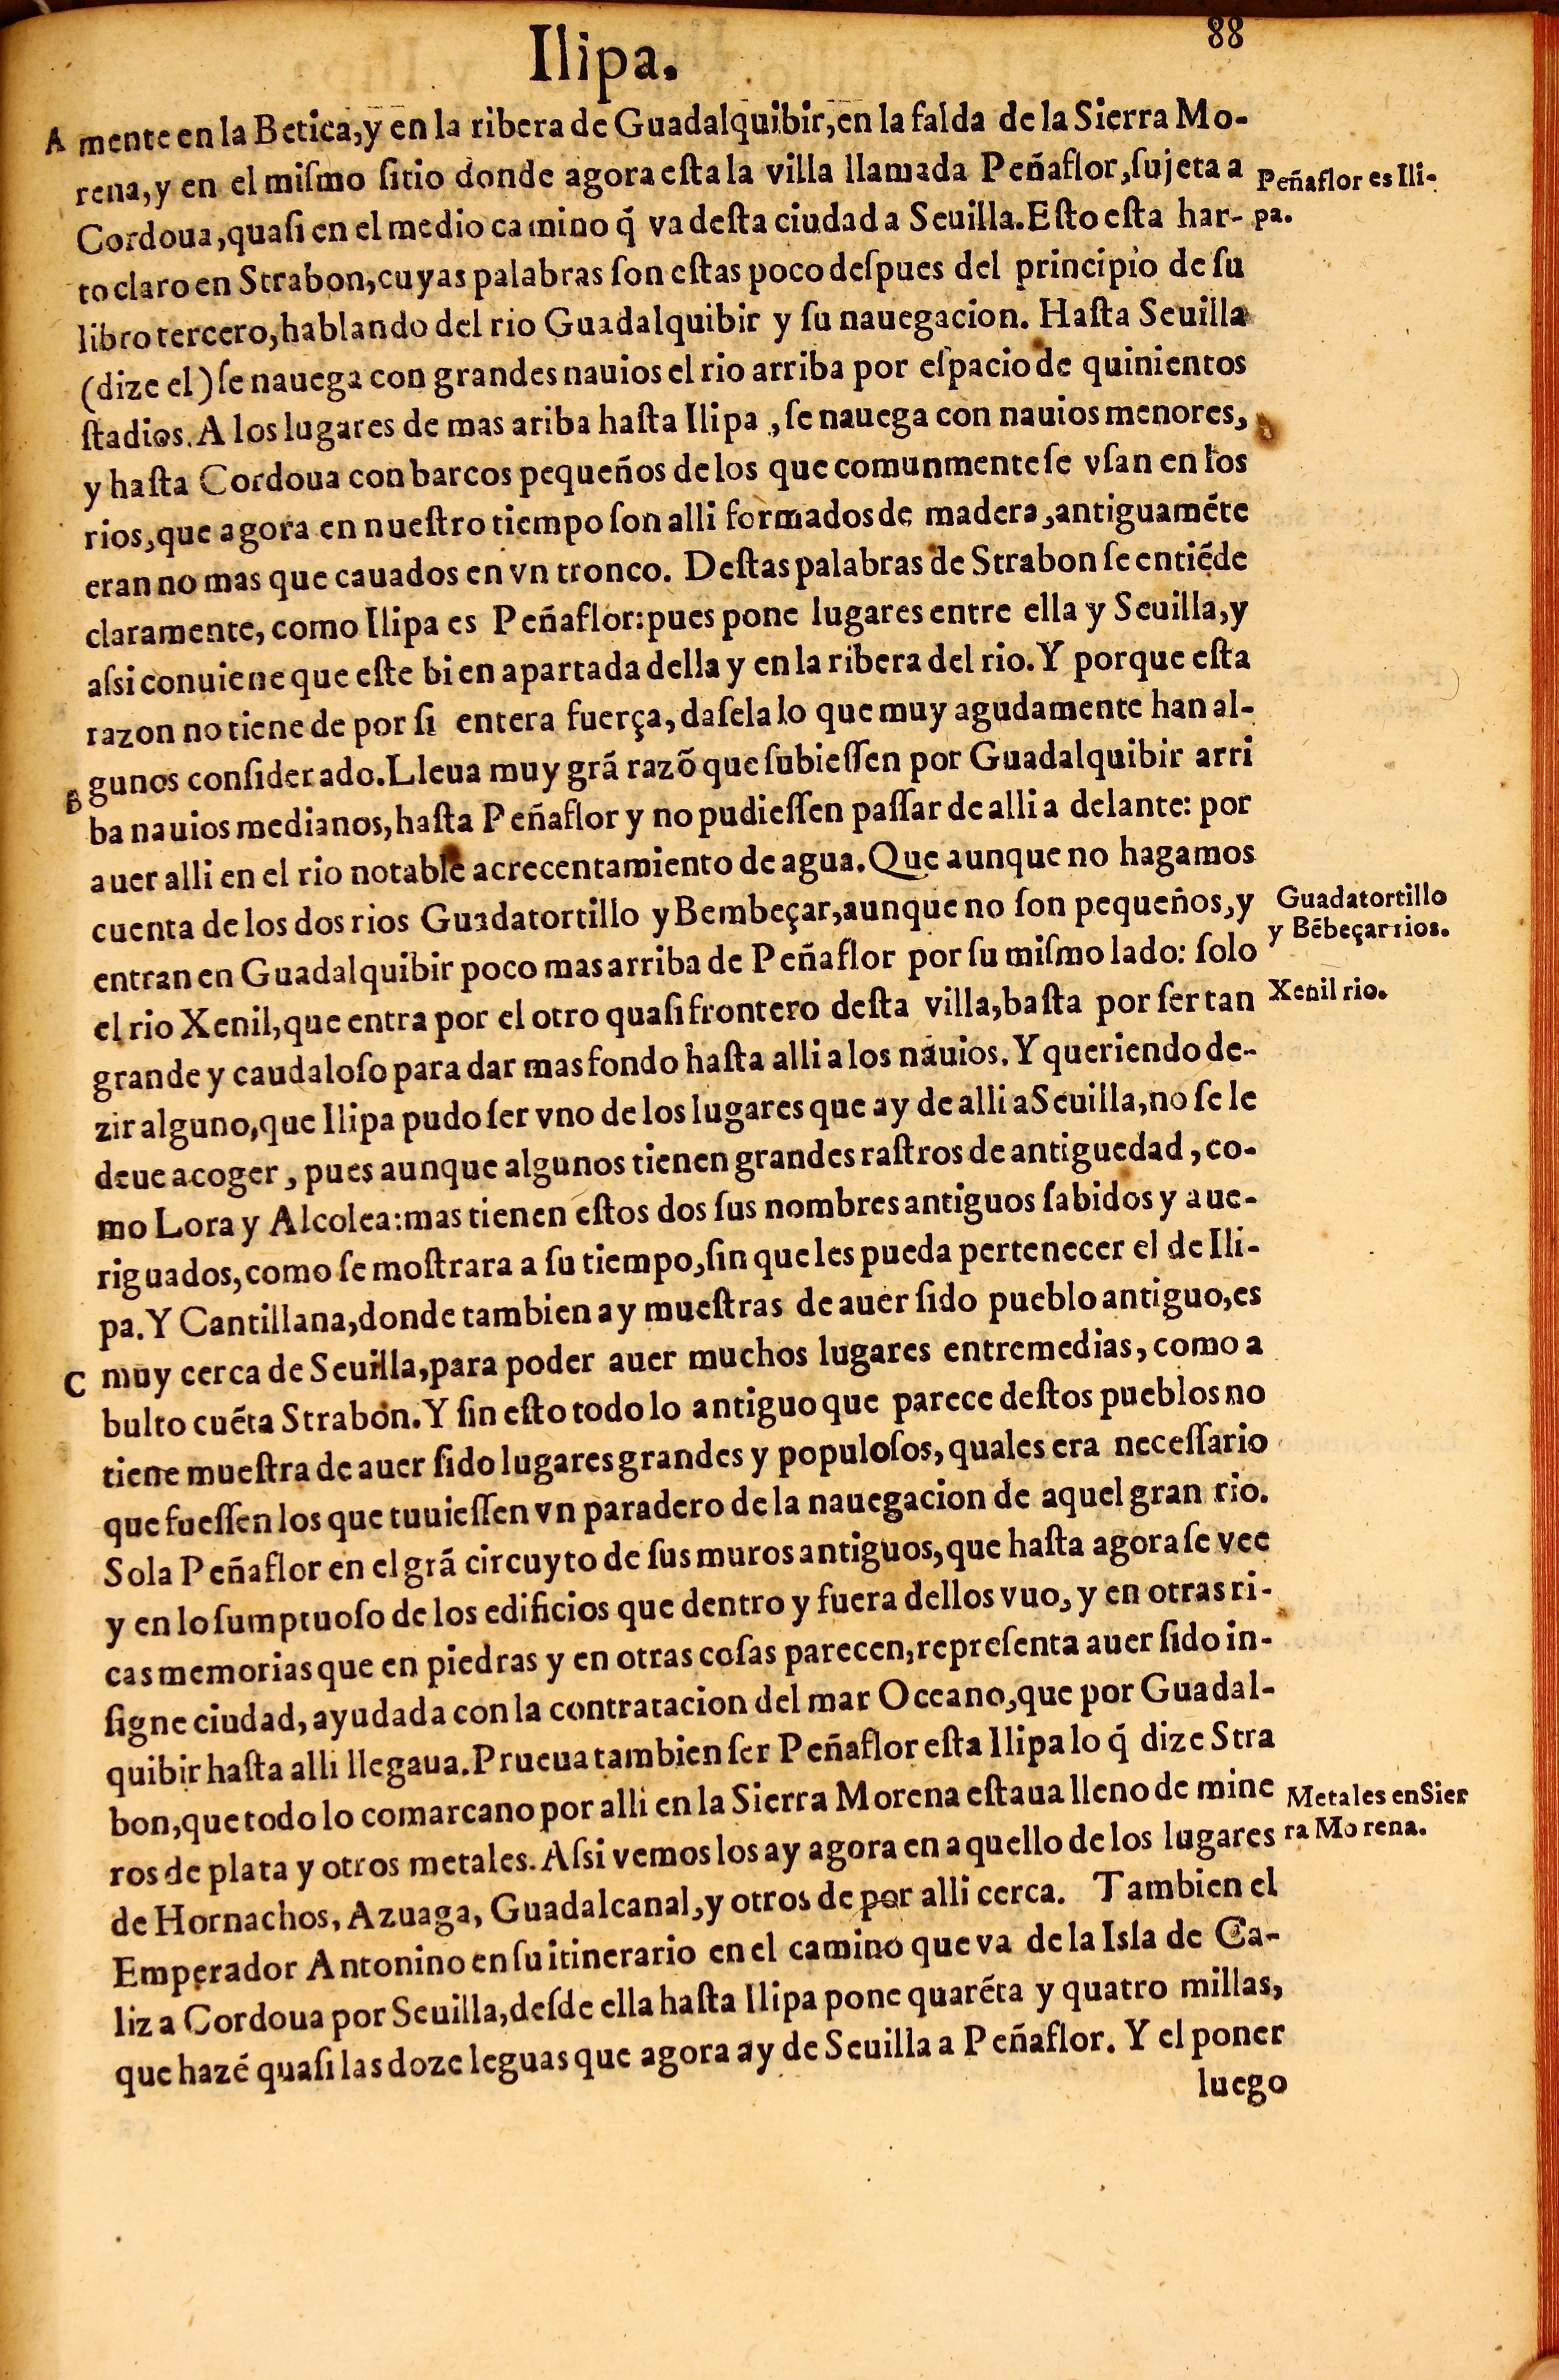 Ilipa.
88
A mente en la Betica, y en la ribera de Guadalquibir, en la falda de la Sierra Mo-
rena, y en el miſmo ſitio donde agora eſta la villa llamada Peñaflor, ſujeta a
Peñaflor es Ili-
Cordoua, quaſi en el medio camino q̃ va deſta ciudad a Seuilla. Eſto eſta har-
pa.
to claro en Strabon, cuyas palabras ſon eſtas poco deſpues del principio de ſu
libro tercero, hablando del rio Guadalquibir y ſu nauegacion. Haſta Seuilla
(dize el) ſe nauega con grandes nauios el rio arriba por eſpacio de quinientos
ſtadios. A los lugares de mas ariba haſta Ilipa, ſe nauega con nauios menores,
y haſta Cordoua con barcos pequeños de los que comunmente ſe vſan en los
rios, que agora en nueſtro tiempo ſon alli formados de madera, antiguamẽte
eran no mas que cauados en vn tronco. Deſtas palabras de Strabon ſe entiẽde
claramente, como Ilipa es Peñaflor: pues pone lugares entre ella y Seuilla, y
aſsi conuiene que eſte bien apartada della y en la ribera del rio. Y porque eſta
razon no tiene de por ſi entera fuerça, daſela lo que muy agudamente han al-
B gunos conſiderado. Lleua muy grã razõ que ſubieſſen por Guadalquibir arri
ba nauios medianos, haſta Peñaflor y no pudieſſen paſſar de alli a delante: por
auer alli en el rio notable acrecentamiento de agua. Que aunque no hagamos
cuenta de los dos rios Guadatortillo y Bembeçar, aunque no ſon pequeños, y
Guadatortillo
y Bẽbeçar rios.
entran en Guadalquibir poco mas arriba de Peñaflor por ſu miſmo lado: ſolo
el rio Xenil, que entra por el otro quaſi frontero deſta villa, baſta por ſer tan
Xenil rio.
grande y caudaloſo para dar mas fondo haſta alli a los nauios. Y queriendo de-
zir alguno, que Ilipa pudo ſer vno de los lugares que ay de alli a Seuilla, no ſe le
deue acoger, pues aunque algunos tienen grandes raſtros de antiguedad, co-
mo Lora y Alcolea: mas tienen eſtos dos ſus nombres antiguos ſabidos y aue-
riguados, como ſe moſtrara a ſu tiempo, ſin que les pueda pertenecer el de Ili-
pa. Y Cantillana, donde tambien ay mueſtras de auer ſido pueblo antiguo, es
C muy cerca de Seuilla, para poder auer muchos lugares entremedias, como a
bulto cuẽta Strabon. Y ſin eſto todo lo antiguo que parece deſtos pueblos no
tiene mueſtra de auer ſido lugares grandes y populoſos, quales era neceſſario
que fueſſen los que tuuieſſen vn paradero de la nauegacion de aquel gran rio.
Sola Peñaflor en el grã circuyto de ſus muros antiguos, que haſta agora ſe vee
y en lo ſumptuoſo de los edificios que dentro y fuera dellos vuo, y en otras ri-
cas memorias que en piedras y en otras coſas parecen, repreſenta auer ſido in-
ſigne ciudad, ayudada con la contratacion del mar Oceano, que por Guadal-
quibir haſta alli llegaua. Prueua tambien ſer Peñaflor eſta Ilipa lo q̃ dize Stra
bon, que todo lo comarcano por alli en la Sierra Morena eſtaua lleno de mine
Metales en Sier
ra Morena.
ros de plata y otros metales. Aſsi vemos los ay agora en aquello de los lugares
de Hornachos, Azuaga, Guadalcanal, y otros de por alli cerca. Tambien el
Emperador Antonino en ſu itinerario en el camino que va de la Isla de Ca-
liz a Cordoua por Seuilla, deſde ella haſta Ilipa pone quarẽta y quatro millas,
que hazẽ quaſi las doze leguas que agora ay de Seuilla a Peñaflor. Y el poner
luego